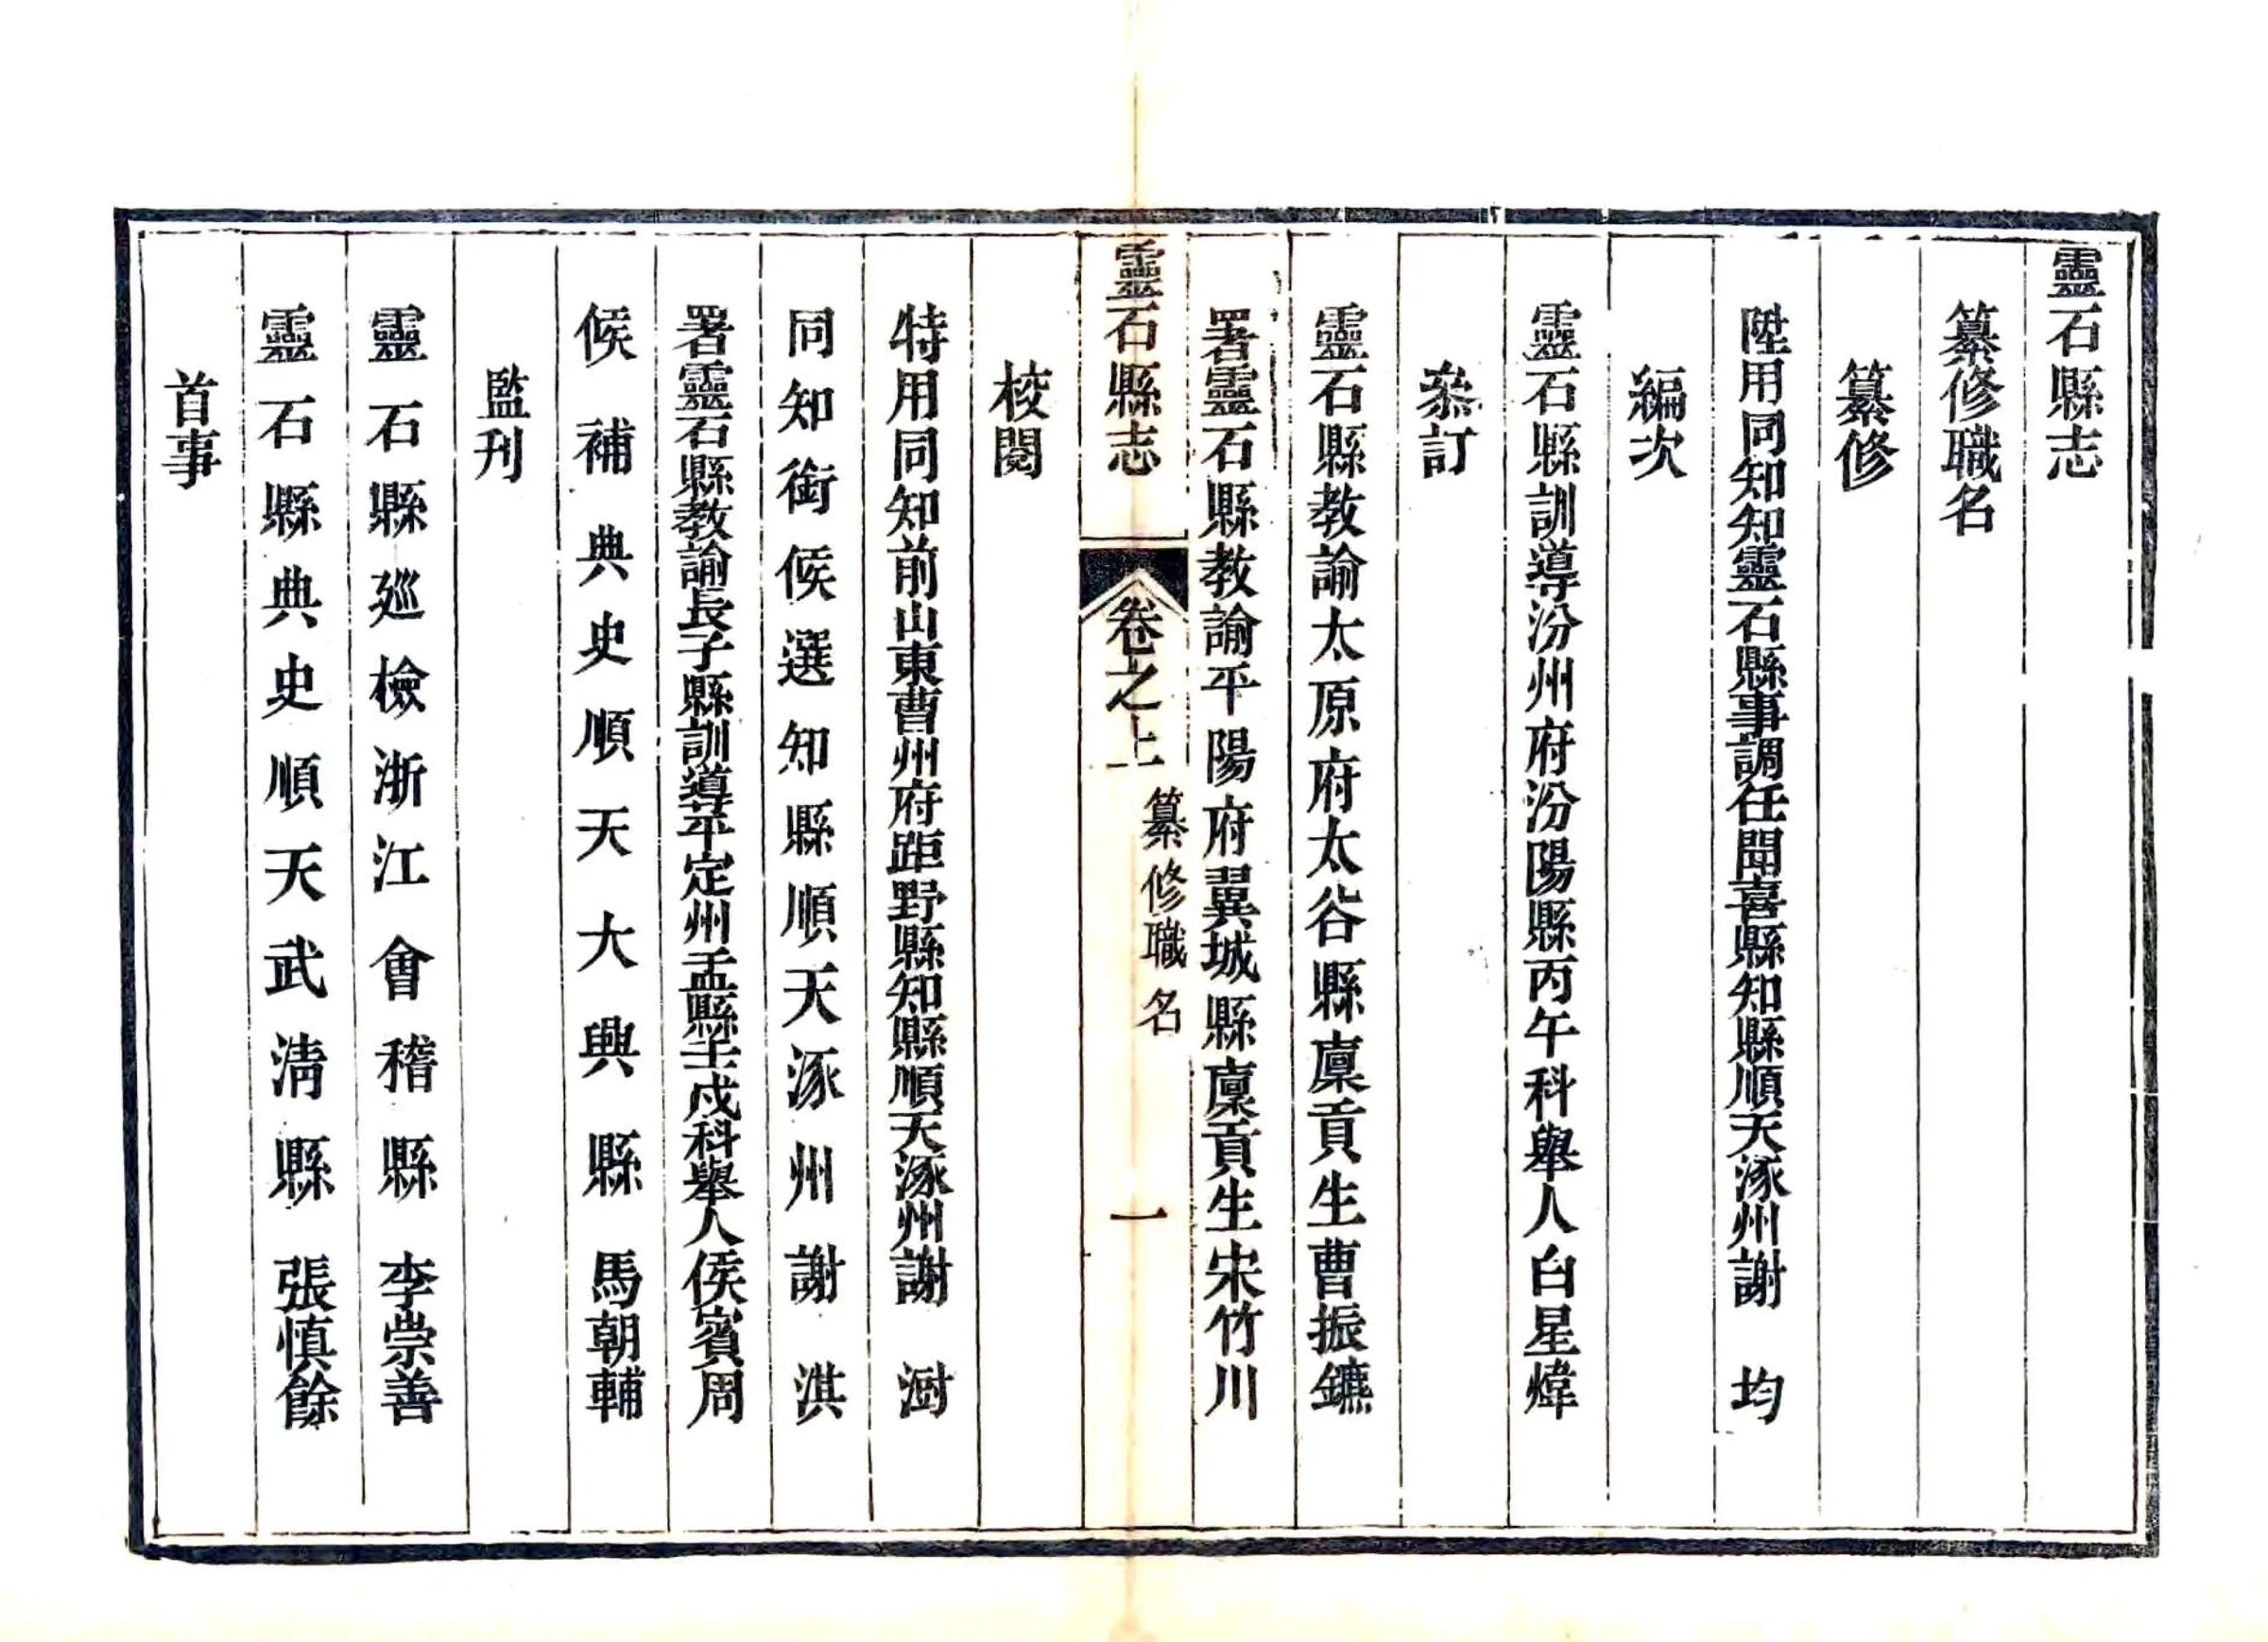 靈石縣志
纂修職名
纂修
陞用同知知靈石縣事調任聞喜縣知縣順天涿州謝　均
編次
靈石縣訓導汾州府汾陽縣丙午科舉人白星煒
叅訂
靈石縣教諭太原府太谷縣廩貢生曹振鑣
署靈石縣教諭平陽府翼城縣廩貢生宋竹川
靈石縣志　卷之上　纂修職名　一
校閱
特用同知前山東曹州府距野縣知縣順天涿州謝　澍
同知銜候選知縣順天涿州謝　淇
署靈石縣教諭長子縣訓導平定州盂縣壬戌科舉人侯賓周
候補典史順天大興縣　馬朝輔
監刊
靈石縣廵檢浙江會稽縣　李崇善
靈石縣典史順天武淸縣　張慎餘
首事